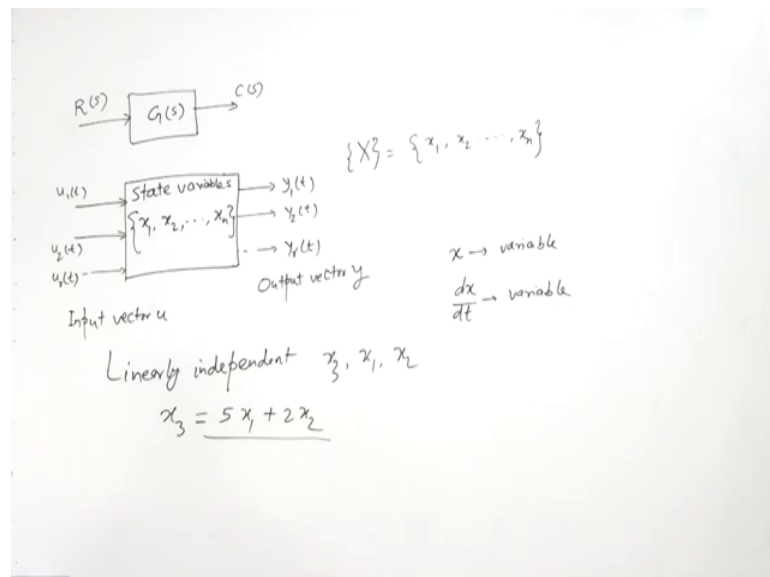 R(s) G(s) C(s)
{X} = {x₁, x₂ ..., xₙ}
u₁(t) State variables y₁(t)
{x₁, x₂, ..., xₙ} y₂(t)
u₂(t)
uᵣ(t) yᵣ(t)
Input vector u Output vector y
x → variable
dx/dt → variable
Linearly independent x₃, x₁, x₂
x₃ = 5x₁ + 2x₂